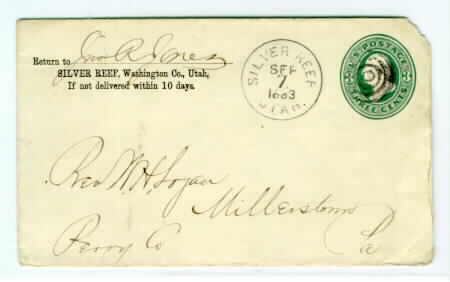 Return to Jno R Jones
SILVER REEF, Washington Co., Utah,
If not delivered within 10 days.
SILVER REEF
SEP
7
1883
UTAH.
U.S. POSTAGE
THREE CENTS
Rev W H Logan
Millerstown
Perry Co
Pa